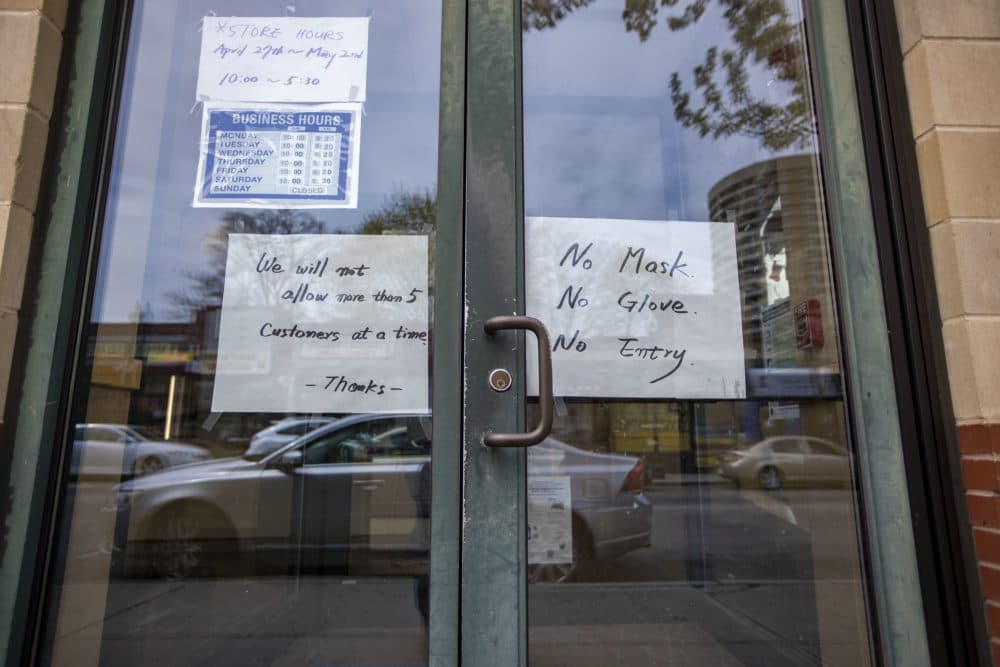 *STORE HOURS
April 27th ~ May 2nd
10:00 ~ 5:30
BUSINESS HOURS
MONDAY 10:00 8:20
TUESDAY 10:00 8:20
WEDNESDAY 10:00 8:20
THURSDAY 10:00 8:20
FRIDAY 10:00 8:20
SATURDAY 10:00 8:20
SUNDAY CLOSED
We will not
allow more than 5
Customers at a time
- Thanks -
No Mask.
No Glove.
No Entry.